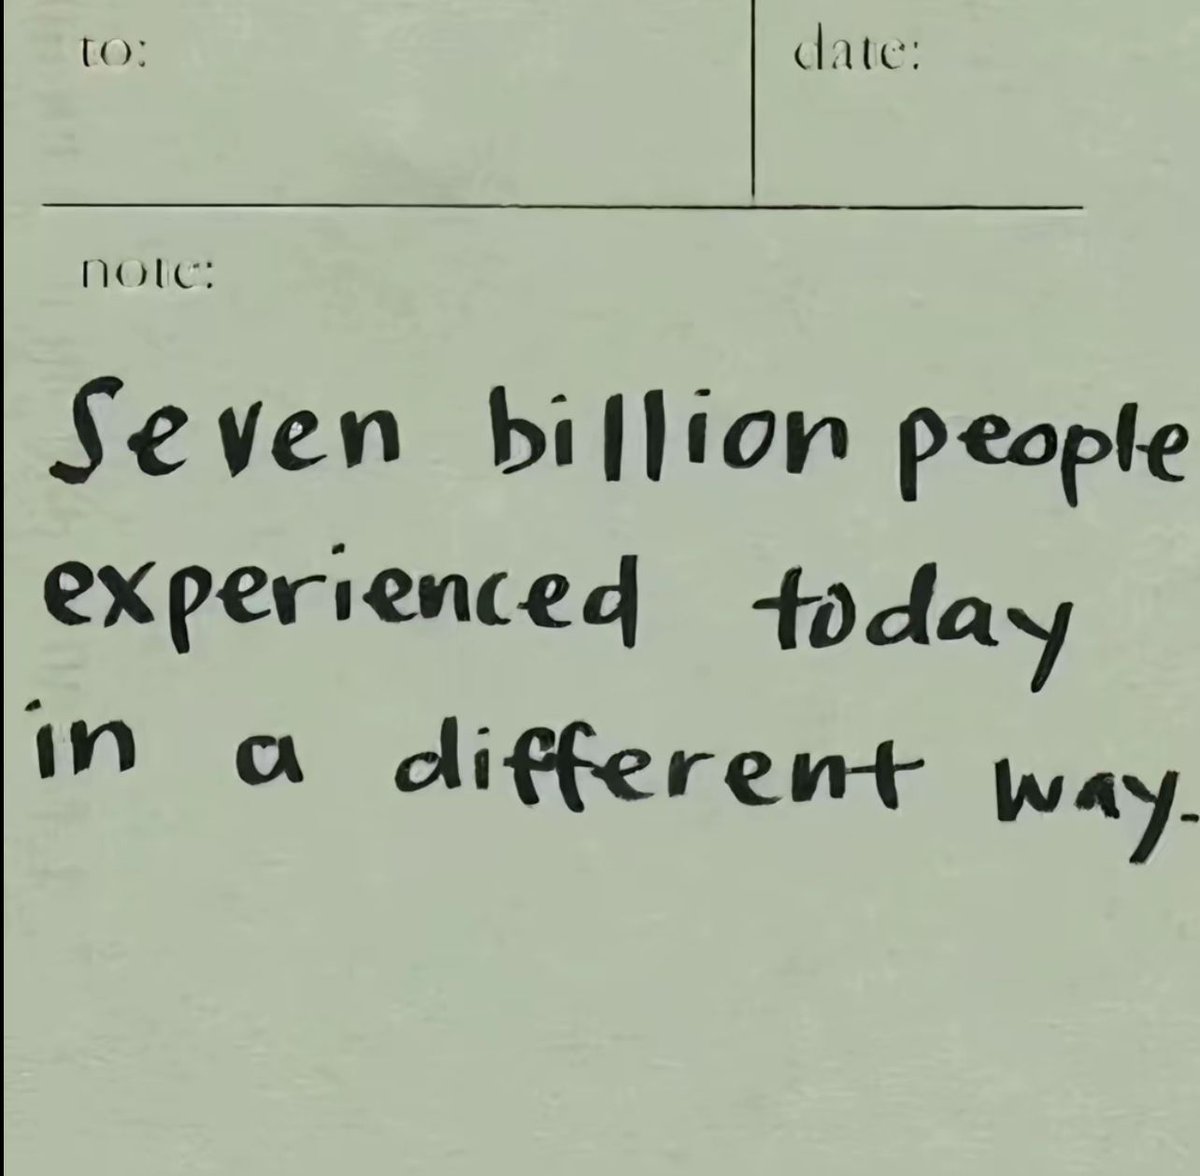 to:
date:
note:
Seven billion people
experienced today
in a different way.